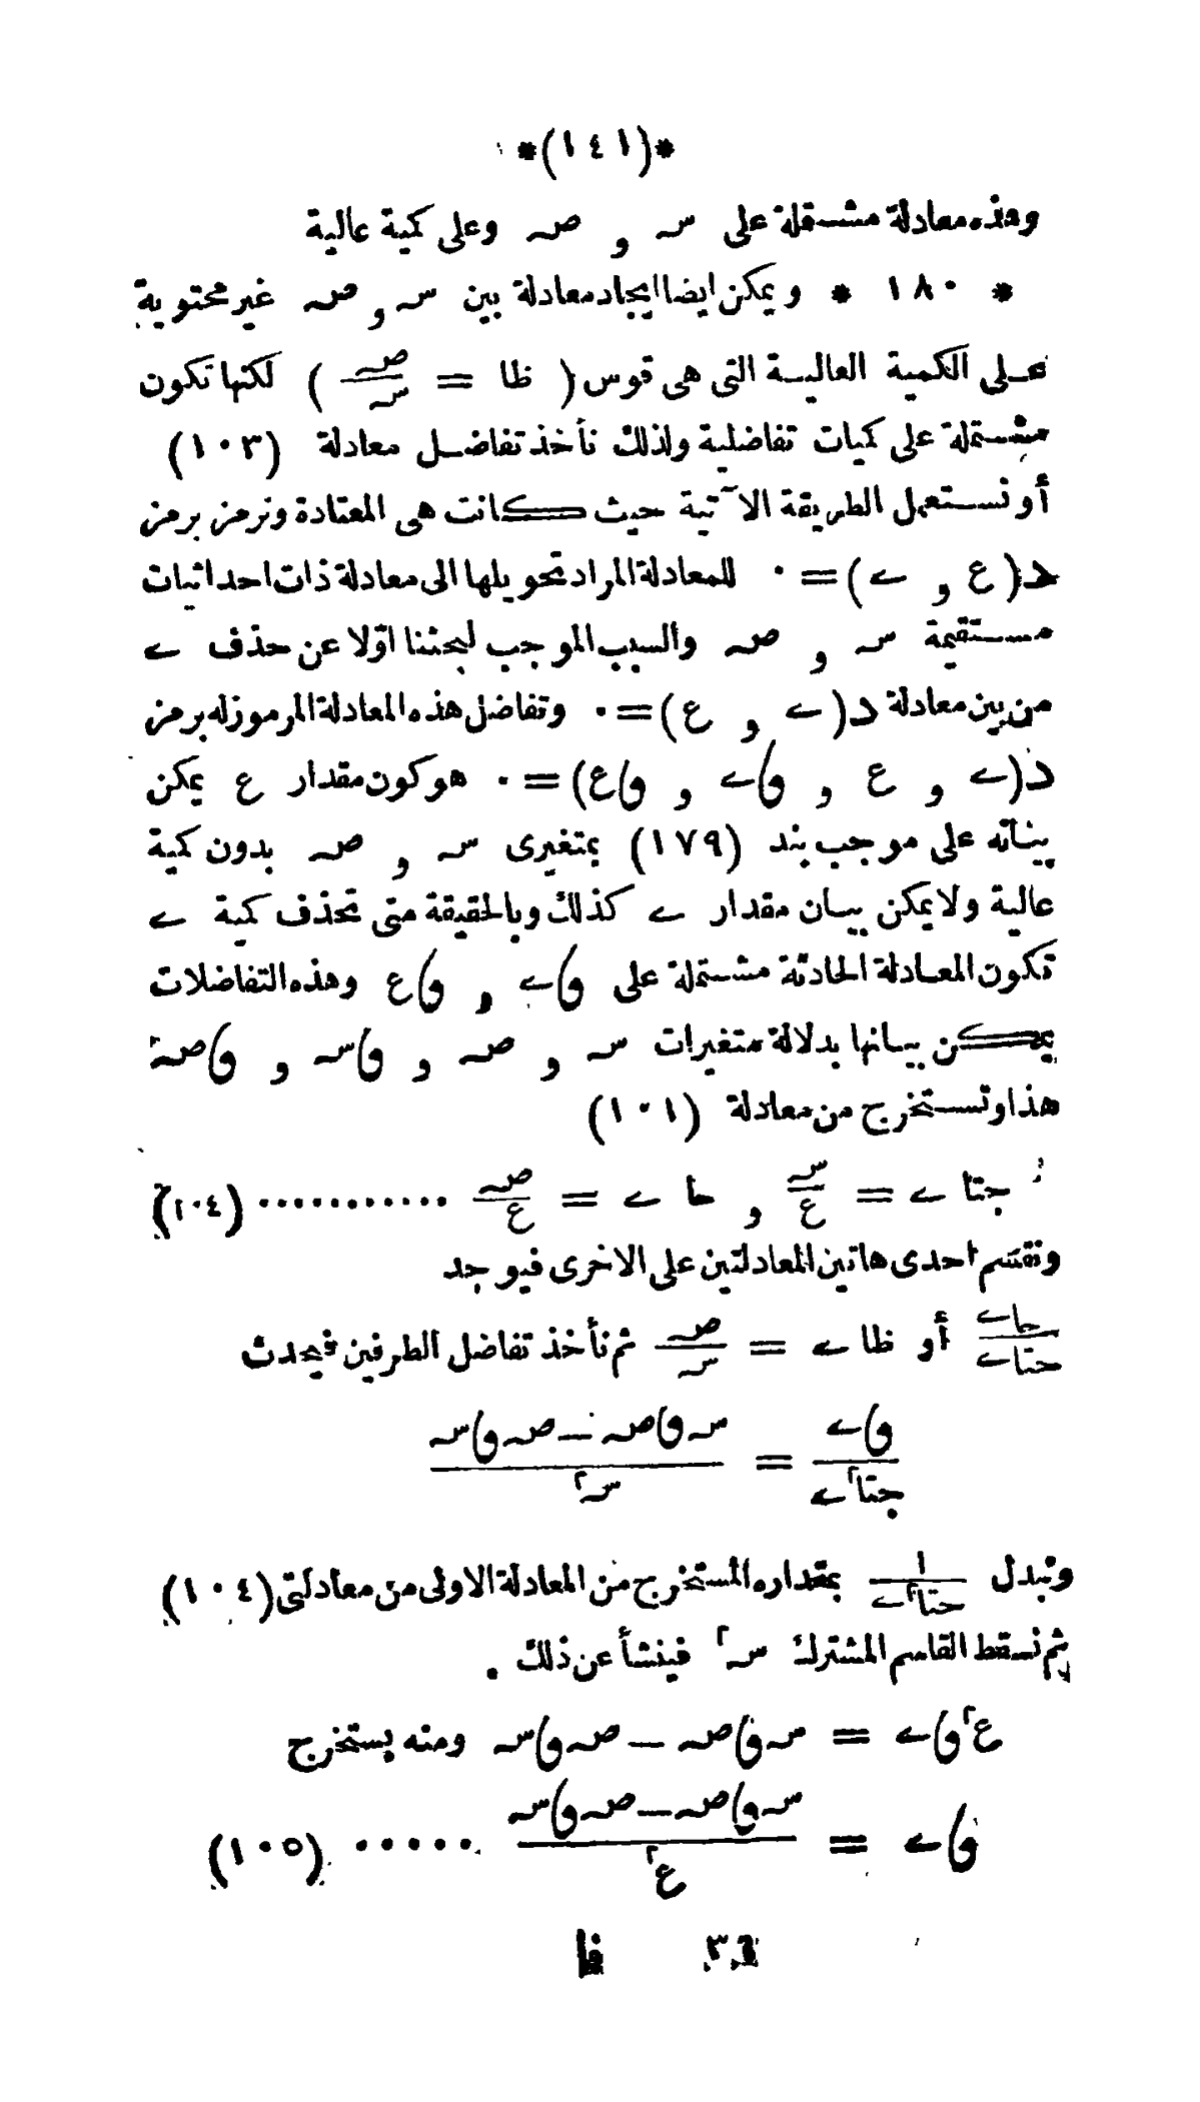 *(١٤١)*
وهذه معادلة مشتملة على سـ و صـ وعلى كمية عالية
* ١٨٠ * ويمكن ايضا ايجاد معادلة بين سـ و صـ غير محتوية
على الكمية العالية التى هى قوس ( ظا = صـ/سـ ) لكنها تكون
مشتملة على كميات تفاضلية ولذلك نأخذ تفاضل معادلة (١٠٣)
أو نستعمل الطريقة الآتية حيث كانت هى المعتادة ونرمز برمز
د(ع و ے) = ٠ للمعادلة المراد تحويلها الى معادلة ذات احداثيات
مستقيمة سـ و صـ والسبب الموجب لبحثنا اوّلا عن حذف ے
من بين معادلة د(ے و ع) = ٠ وتفاضل هذه المعادلة المرموزله برمز
ذ(ے و ع و ڡاے و ڡاع) = ٠ هو كون مقدار ع يمكن
بيناته على موجب بند (١٧٩) بمتغيرى سـ و صـ بدون كمية
عالية ولا يمكن بيان مقدار ے كذلك وبالحقيقة متى تحذف كمية ے
تكون المعادلة الحادثة مشتملة على ڡاے و ڡاع وهذه التفاضلات
يمكن بيانها بدلالة متغيرات سـ و صـ و ڡاسـ و ڡاصـ
هذا وتستخرج من معادلة (١٠١)
جتا ے = سـ/ع و حا ے = صـ/ع ........... (١٠٤)
ونقسم احدى هاتين المعادلتين على الاخرى فيوجد
حاے/حتاے أو ظاے = صـ/سـ ثم نأخذ تفاضل الطرفين فيحدث
ڡاے/جتا٢ے = (سـ ڡاصـ − صـ ڡاسـ)/سـ٢
ونبدل ١/حتا٢ے بمقداره المستخرج من المعادلة الاولى من معادلتى (١٠٤)
ثم نسقط القاسم المشترك سـ٢ فينشأ عن ذلك .
ع٢ ڡاے = سـ ڡاصـ − صـ ڡاسـ ومنه يستخرج
ڡاے = (سـ ڡاصـ − صـ ڡاسـ)/ع٢ ..... (١٠٥)
فا